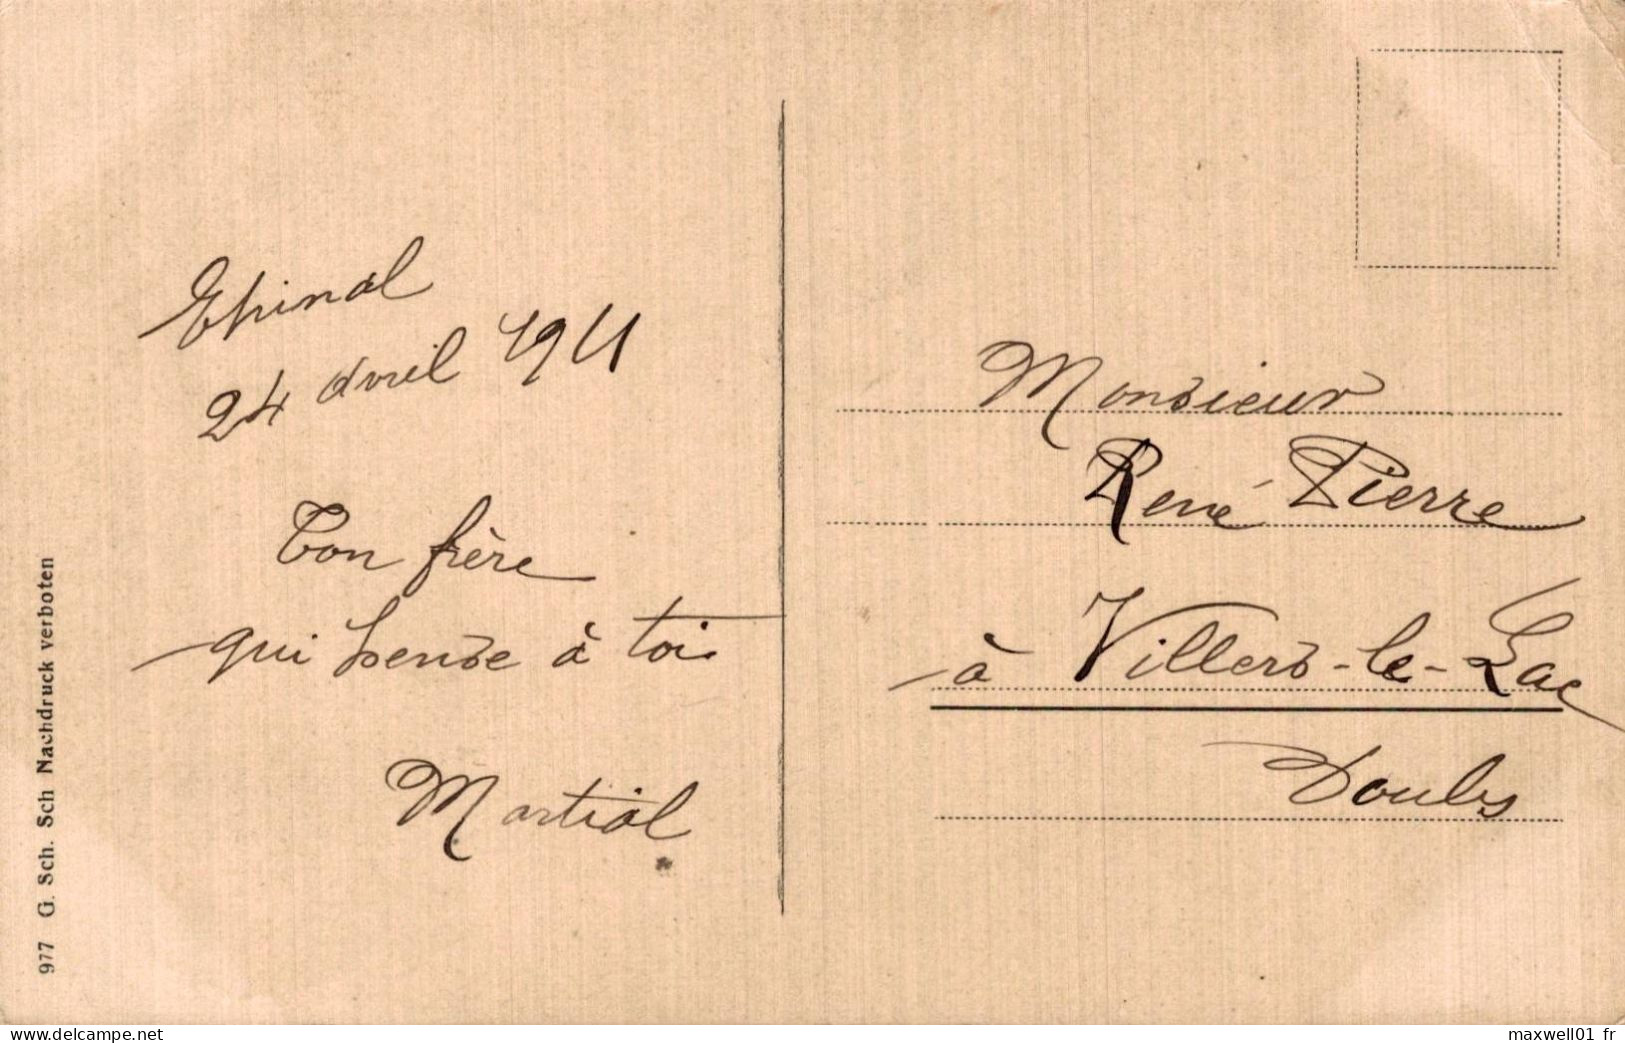 Epinal
24 avril 1911
Ton frère
qui pense à toi
Martial
Monsieur
René Pierre
à Villers-le-Lac
Doubs
977 G. Sch. Sch Nachdruck verboten
delcampe.net
maxwell01 fr